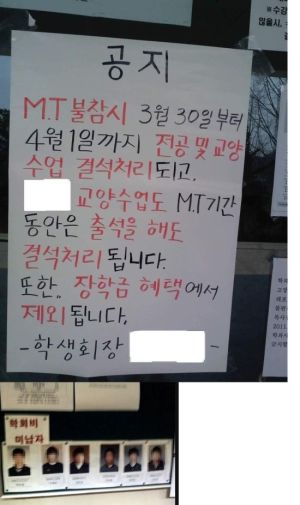 공지
M.T 불참시 3월 30일부터
4월 1일까지 전공 및 교양
수업 결석처리 되고,
교양수업도 M.T기간
동안은 출석을 해도
결석처리 됩니다.
또한.. 장학금 혜택에서
제외 됩니다,
-학생회장 -
학회비
미납자